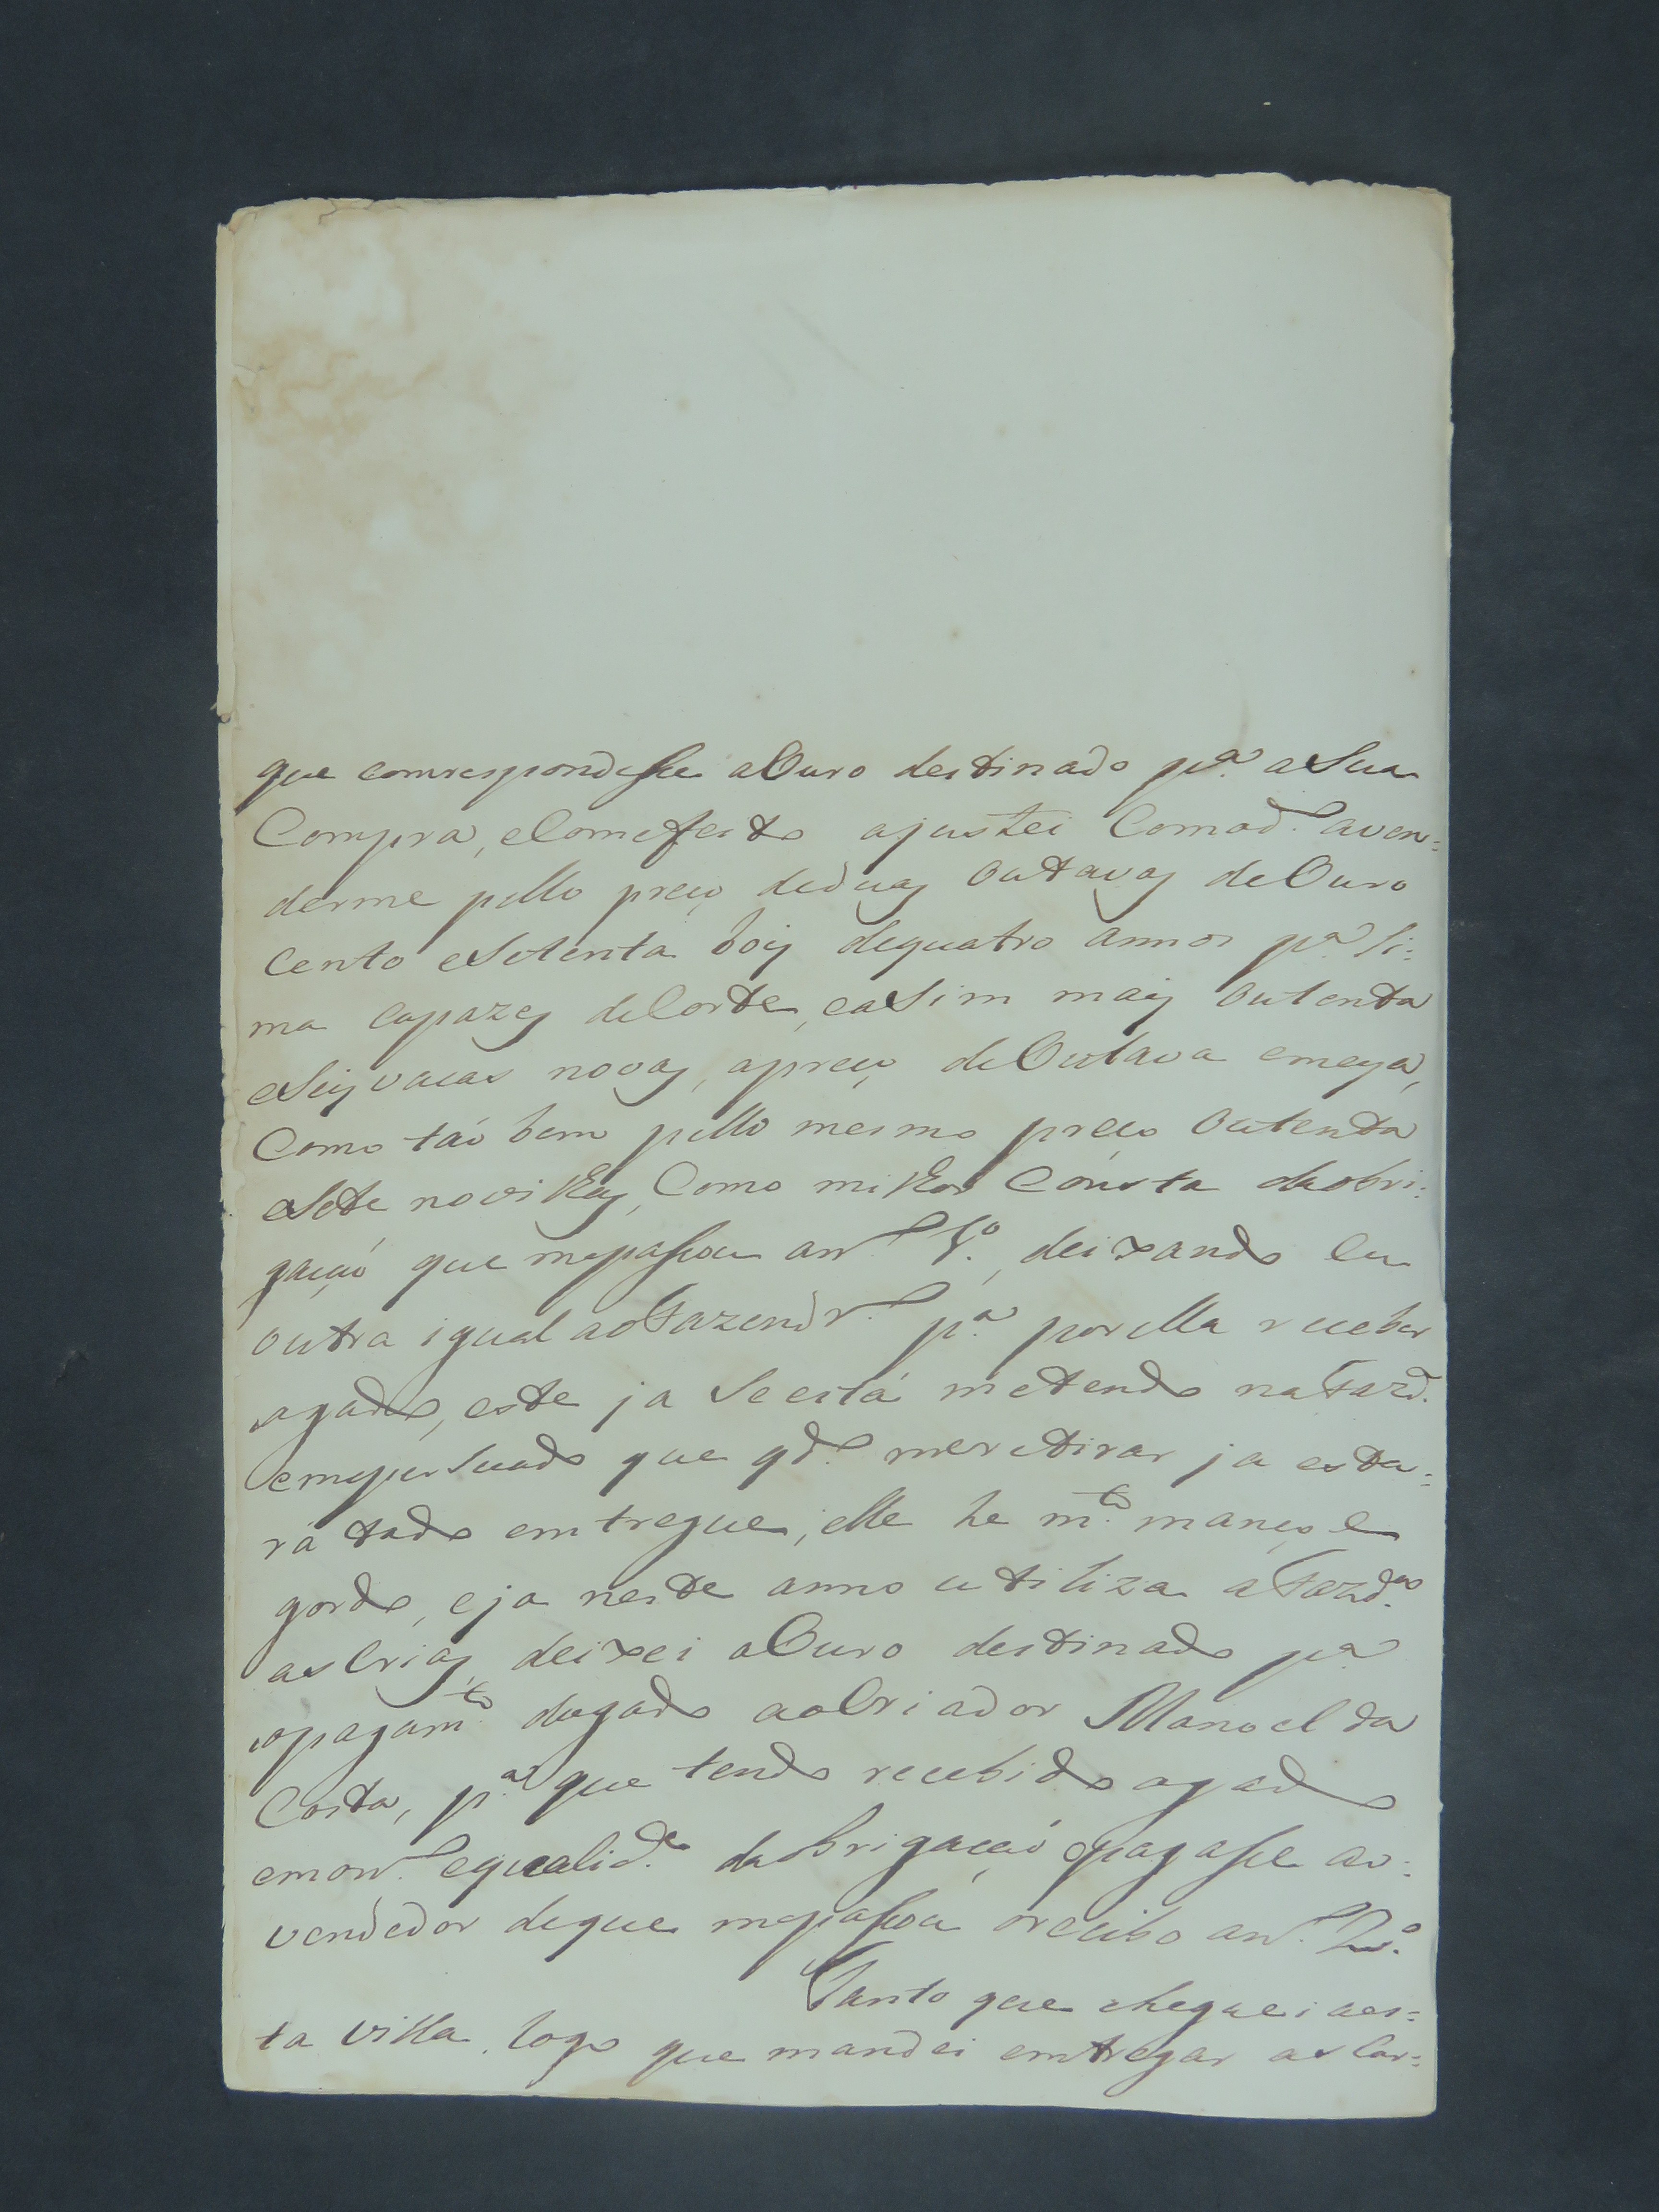 que comrespondesse aOuro destinado p.ª aSua
Compra, eComefeito ajustei Comod.º aven=
derme pello preço deduas Outavas deOuro
Cento eSetenta bois dequatro annos p.ª Si=
ma capazes deCorte, eaSim mais Outenta
eSeis vacas novas, apreço deOutava emeya,
Como taõ bem pello mesmo preço Outenta
eSete novilhas, Como milhor Consta daobri=
gaçaõ que mepassou an.º 1.º, deixando eu
outra igual aoFazendr.º p.ª porella receber
ogado, este ja Seestá metendo naFazd.ª
emepersuado que qd.º meretirar ja esta=
rá todo emtregue, elle he m.to manço, e
gordo, eja neste anno utiliza aFazd.ª
asCrias, deixei oOuro destinado p.ª
opagam.to dogado aoCriador Manoel da
Costa, p.ª que tendo recebido ogado
emon.º equalid.e daobrigaçaõ opagasse ao=
vendedor deque mepassou orecibo an.º 2.º
Tanto que cheguei aes=
ta Villa, logo que mandei emtregar asCar=